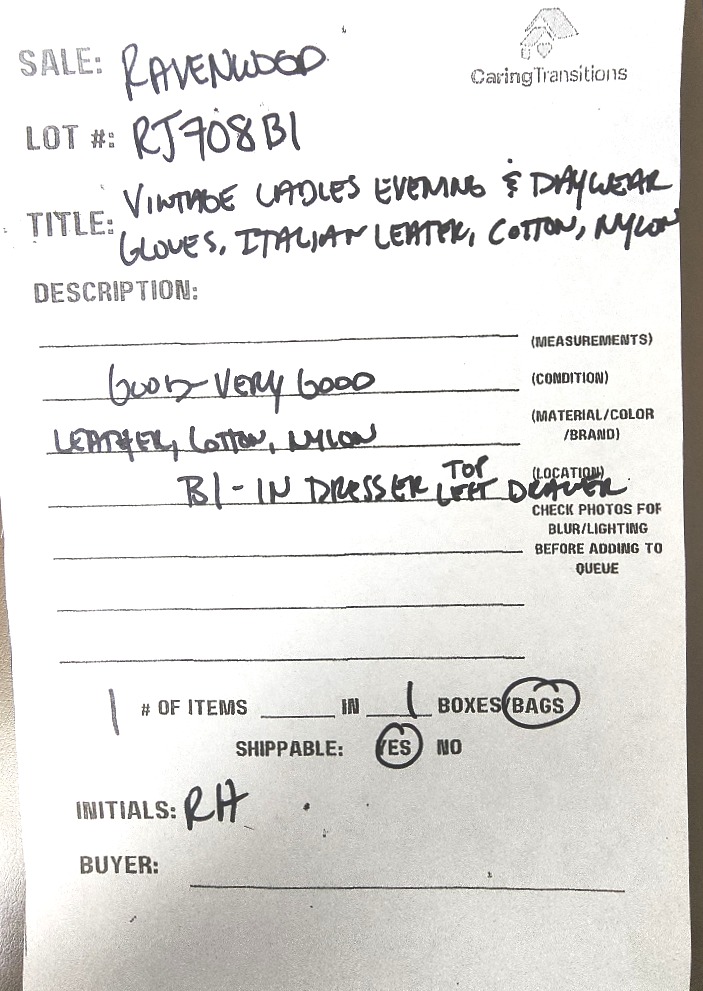 SALE: RAVENWOOD
CaringTransitions
LOT #: RJ708B1
TITLE: VINTAGE LADIES EVENING & DAYWEAR
GLOVES, ITALIAN LEATER, COTTON, NYLON
DESCRIPTION:
(MEASUREMENTS)
GOOD-VERY GOOD (CONDITION)
LEATHER, COTTON, NYLON (MATERIAL/COLOR
/BRAND)
B1- IN DRESSER TOP LEFT DRAWER (LOCATION)
CHECK PHOTOS FOR
BLUR/LIGHTING
BEFORE ADDING TO
QUEUE
1 # OF ITEMS IN 1 BOXES/BAGS
SHIPPABLE: YES NO
INITIALS: RH
BUYER: